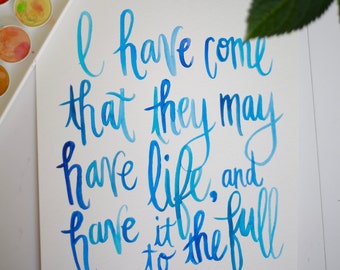 I have come
that they may
have life, and
have it to the full